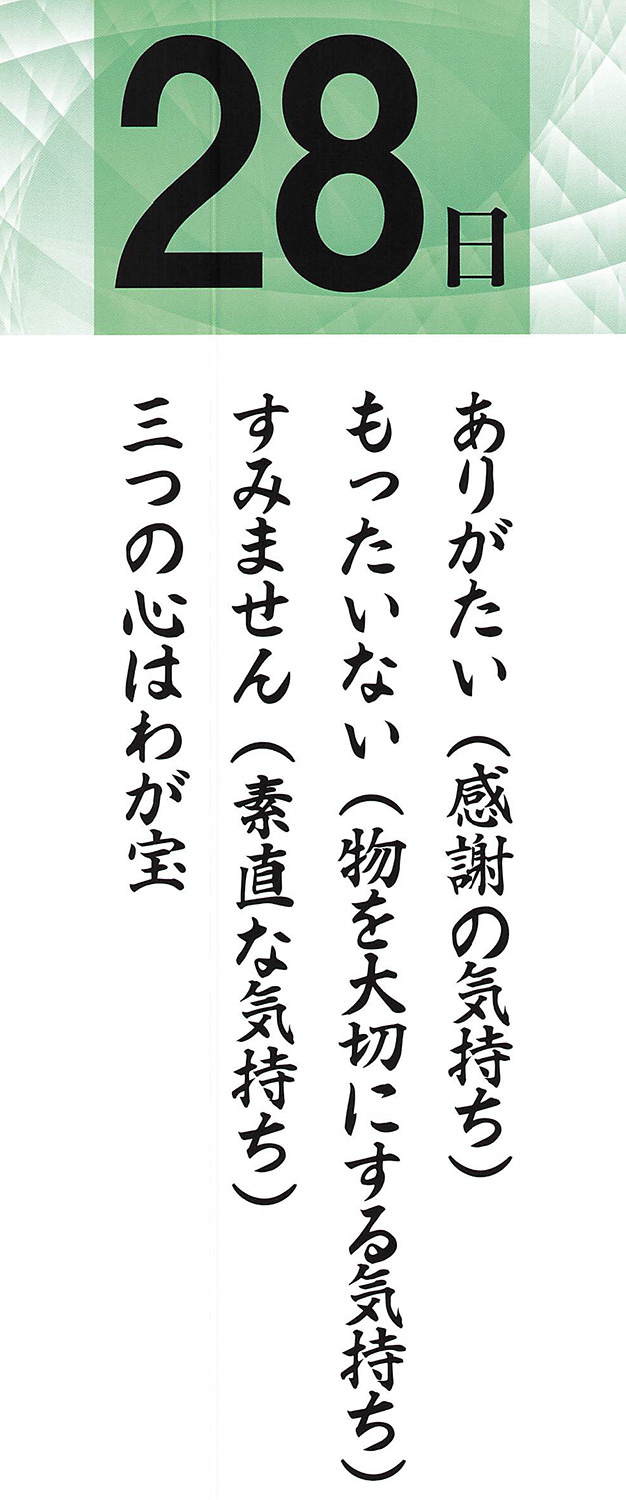 28日
ありがたい（感謝の気持ち）
もったいない（物を大切にする気持ち）
すみません（素直な気持ち）
三つの心はわが宝